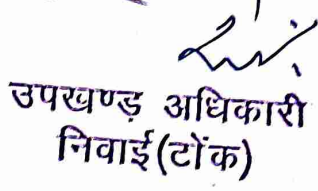 उपखण्ड़ अधिकारी
निवाई(टोंक)